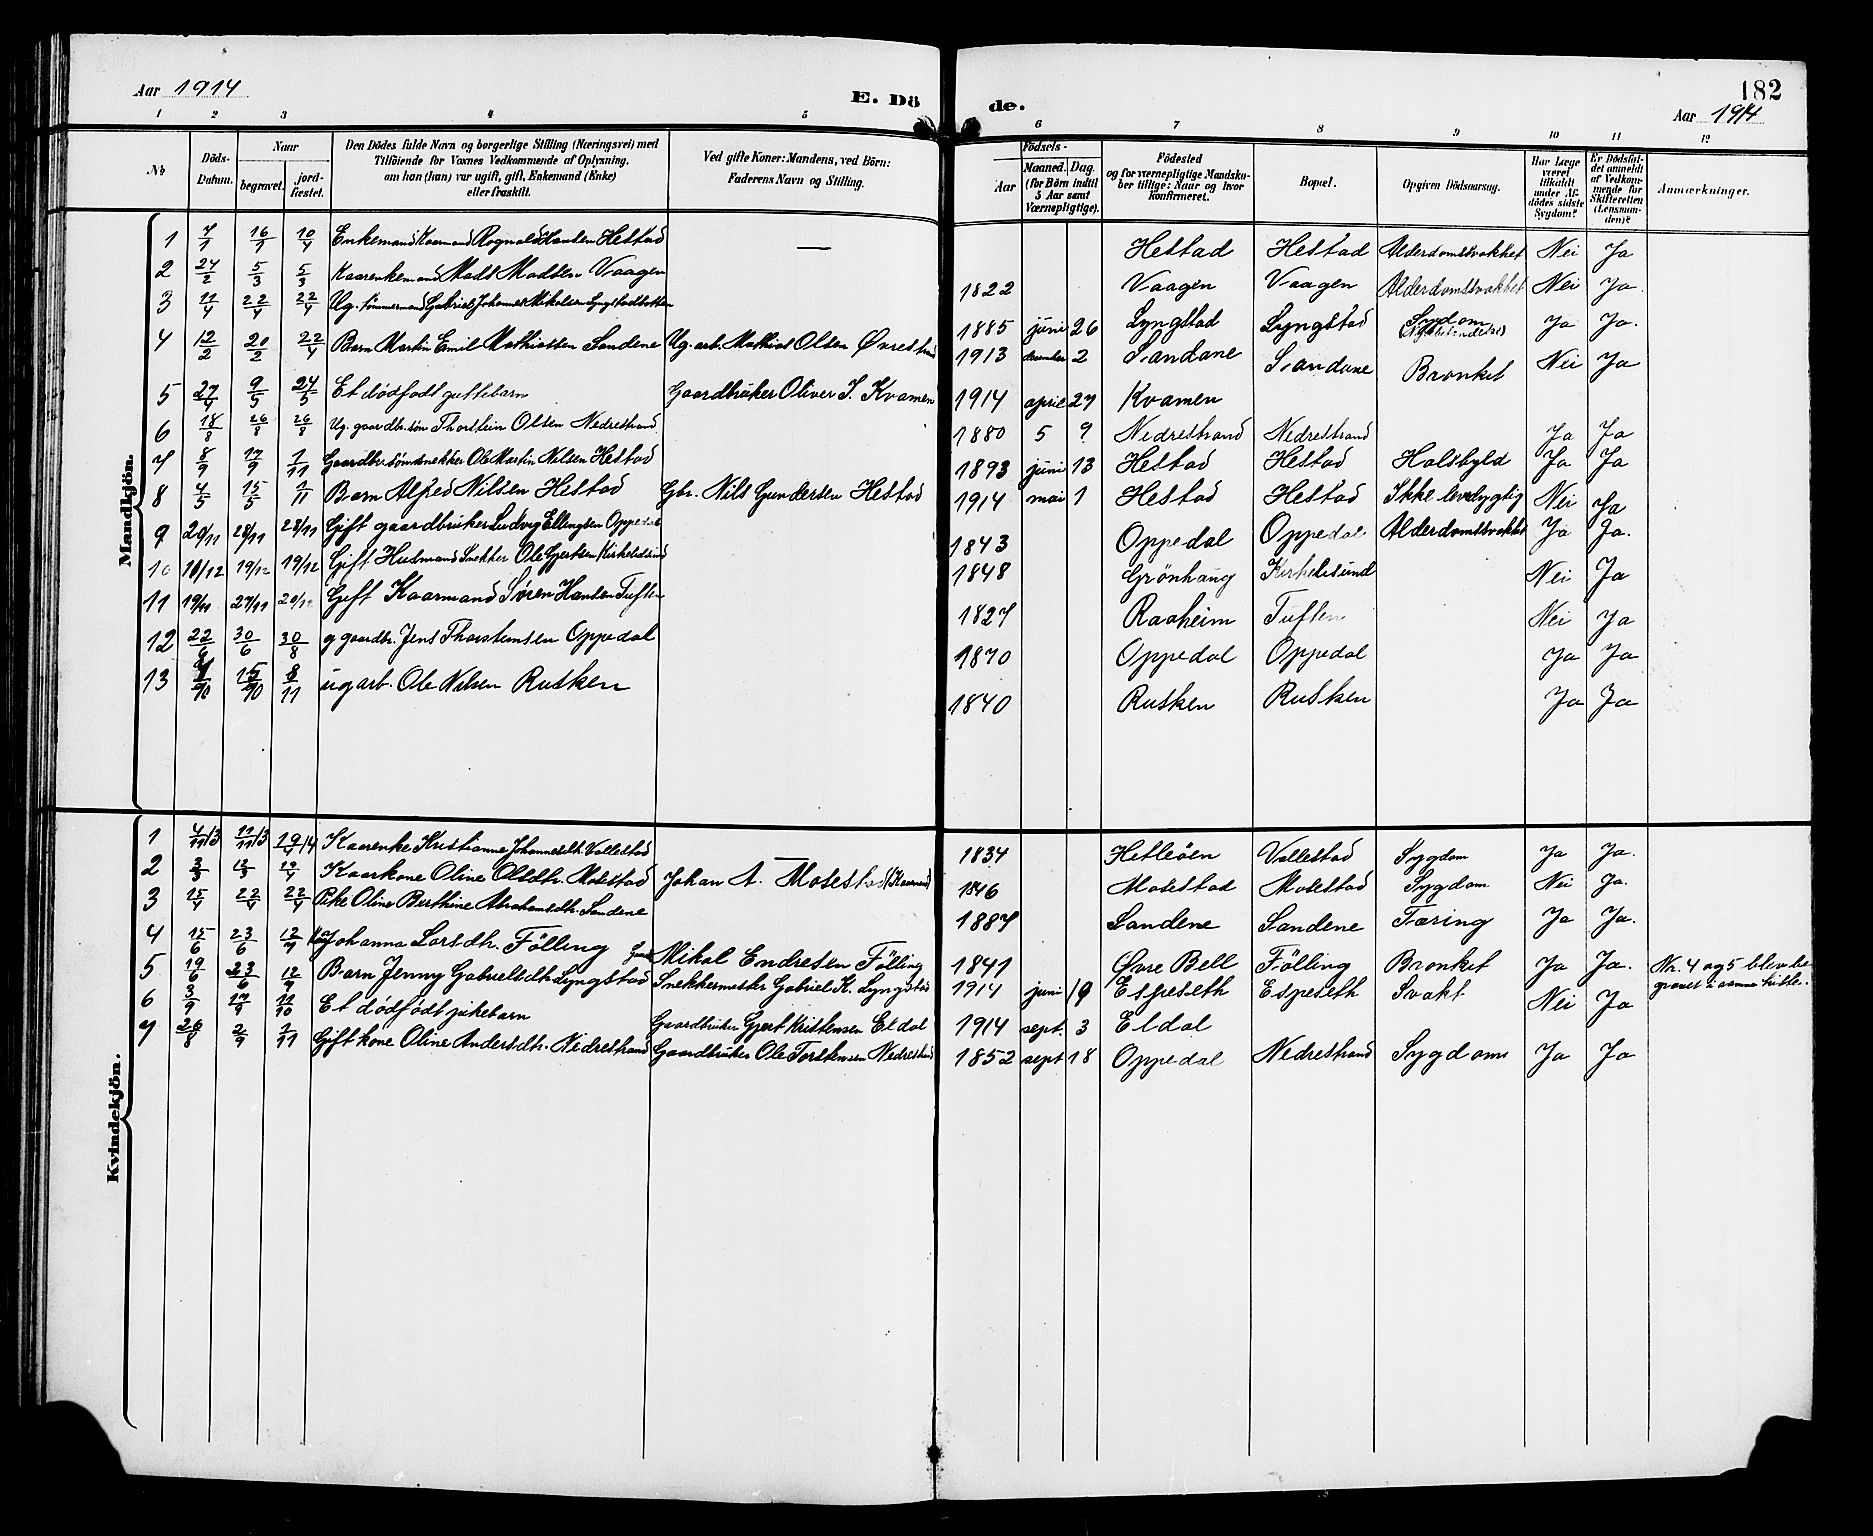 Aar 1914
E. Dö
de.
182
Aar 1914
1 2 3 4 5 6 7 8 9 10 11 12
No
Döds-Datum.
Naar
begravet.
jord-fæstet.
Den Dödes fulde Navn og borgerlige Stilling (Næringsvei) med
Tilföiende for Voxnes Vedkommende af Oplysning,
om han (hun) var ugift, gift, Enkemand (Enke)
eller fraskilt.
Ved gifte Koner: Mandens, ved Börn:
Faderens Navn og Stilling.
Födsels-
Aar
Maaned. Dag.
(for Börn indtil
5 Aar samt
Værnepligtige).
Födested
og for værnepligtige Mandska-
ber tillige: Naar og hvor
konfirmeret.
Bopæl.
Opgiven Dödsaarsag.
Har Læge
været
tilkaldt
under Af-
dödes sidste
Sygdom?
Er Dödsfal-
det anmeldt
af Vedkom-
mende for
Skifteretten
(Lensman-
den)?
Anmærkninger.
Mandkjön.
1 7/1 16/1 10/4 Enkemand Kaarmand Rognald Hansen Hestad — Hestad Hestad Alderdomssvakhet Nei Ja
2 27/2 5/3 5/3 Kaarenkemand Mads Madsen Vaagen 1822 Vaagen Vaagen Alderdomssvakhet Nei Ja
3 11/4 22/4 22/4 Ug. tömmermand Gabriel Johannes Mikalsen Lyngstadbotten 1885 juni 26 Lyngstad Lyngstad Sygdom Ja Ja.
4 12/2 20/2 22/4 Barn Martin Emil Mathiassen Sandene Ug. arb. Mathias Olsen Övrestrand 1913 december 2 Sandane Sandane Bronket Nei Ja
5 27/4 9/5 24/5 Et dödfödt guttebarn Gaardbruker Oliver I. Kvamen 1914 april 27 Kvamen
6 18/8 26/8 26/8 Ug. gaardbr.sön Thorstein Olsen Nedrestrand 1880 5 9 Nedrestrand Nedrestrand Ja Ja
7 8/9 17/9 1/11 Gaardbr.sön snekker Ole Martin Nilsen Hestad 1893 juni 13 Hestad Hestad Halsbyld Ja Ja
8 4/5 15/5 1/11 Barn Alfred Nilsen Hestad Gbr. Nils Gundersen Hestad 1914 mai 1 Hestad Hestad Ikke levedygtig Nei Ja
9 20/11 28/11 28/11 Gift gaardbruker Ludvig Ellingsen Oppedal 1843 Oppedal Oppedal Alderdomssvakhet Ja Ja.
10 10/12 19/12 19/12 Gift Husmand Snekker Ole Gjertsen Kirkelisund 1848 Grönhaug Kirkelisund Nei Ja
11 19/11 27/11 20/12 Gift Kaarmand Sören Hansen Tuften 1827 Raaheim Tuften Nei Ja
12 22/6 30/6 30/8 g gaardbr. Jens Thorsteinsen Oppedal 1870 Oppedal Oppedal Ja Ja
13 15/10 8/11 ug arb. Ole Nilsen Rusken 1840 Rusken Rusken Ja Ja
Kvindekjön.
1 4/11 13 11/11 13 19/4 14 Kaarenke Kristianne Johannesdt. Vallestad — 1834 Hetleöen Vallestad Sygdom Ja Ja.
2 3/3 12/3 19/4 Kaarkone Oline Olsdtr. Molestad Johan A. Molestad (Kaarmand) 1846 Molestad Molestad Sygdom Nei Ja.
3 15/4 22/4 22/4 Pike Oline Berthine Abrahamsdt. Sandene 1887 Sandene Sandene Tæring Ja Ja.
4 15/6 23/6 12/7 Johanna Larsdt. Fölling Mikal Endresen Fölling 1841 Övre Bell Fölling Bronket Ja Ja. Nr. 4 og 5 blev be-
gravet i samme kiste.
5 19/6 23/6 12/7 Barn Jenny Gabrielsdt. Lyngstad Snekkermester Gabriel K. Lyngstad 1914 juni 19 Espeseth Espeseth Svakt Nei Ja
6 3/9 17/9 11/10 Et dödfödt pikebarn Gaardbruker Gjert Kristensen Eldal 1914 sept. 3 Eldal
7 26/8 2/9 1/11 Gift kone Oline Andersdtr. Nedrestrand Gaardbruker Ole Torstensen Nedrestrand 1852 sept 18 Oppedal Nedrestrand Sygdom Ja Ja